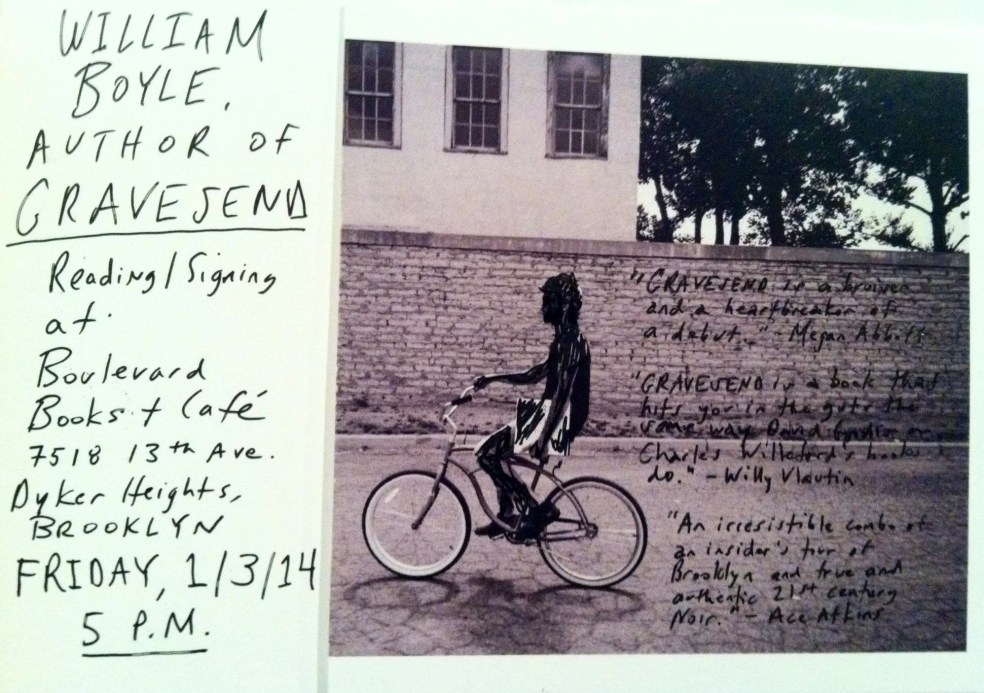 WILLIAM
BOYLE,
AUTHOR OF
GRAVESEND
Reading/Signing
at
Boulevard
Books + Café
7518 13th Ave.
Dyker Heights,
BROOKLYN
FRIDAY, 1/3/14
5 P.M.
"GRAVESEND is a bruiser
and a heartbreaker of
a debut." - Megan Abbott
"GRAVESEND is a book that
hits you in the guts the
same way David Goodis or
Charles Willeford's books
do." - Willy Vlautin
"An irresistible combo of
an insider's tour of
Brooklyn and true and
authentic 21st century
Noir." - Ace Atkins